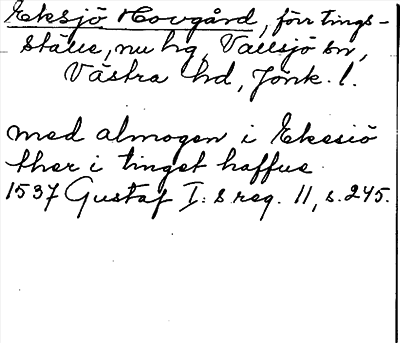 Eksjö Hovgård, förr tings-
ställe, nu hg, Vallsjö sn,
Västra hd, Jönk. l.
med almogen i Ekesiö
ther i tinget haffue
1537 Gustaf I:s reg. 11, s. 245.